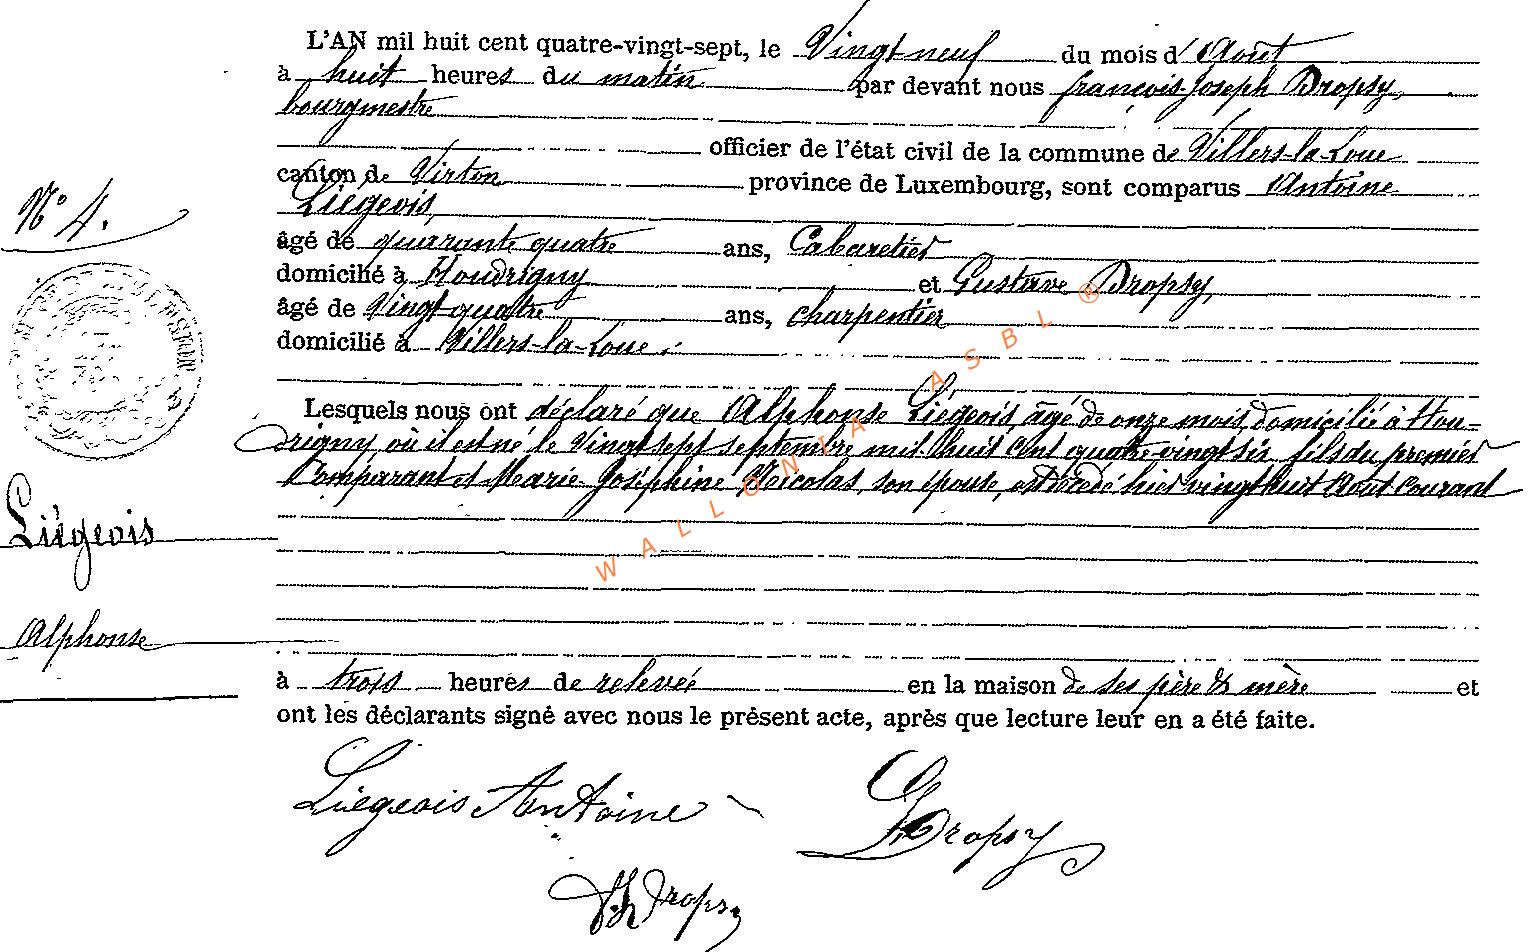 L'AN mil huit cent quatre-vingt-sept, le Vingt neuf du mois d' Août
à huit heures du matin par devant nous françois-Joseph Dropsy,
bourgmestre
officier de l'état civil de la commune de Villers-la-Loue
canton de Virton province de Luxembourg, sont comparus Antoine
Liégeois,
âgé de quarante quatre ans, Cabaretier
domicilié à Houdrigny et Gustave Dropsy,
âgé de Vingt quatre ans, charpentier
domicilié à Villers-la-Loue.
Lesquels nous ont déclaré que Alphonse Liégeois, âgé de onze mois, domicilié à Hou-
drigny, où il est né le vingt sept septembre mil huit cent quatre vingt six, fils du premier
Comparant et Marie Joséphine Nicolas, son épouse, est décédé hier vingt huit Août courant
à trois heures de relevée en la maison de ses père & mère et
ont les déclarants signé avec nous le présent acte, après que lecture leur en a été faite.
N° 4.
Liégeois
Alphonse
Liégeois Antoine
G Dropsy
Dropsy
WALLONIA ASBL ®